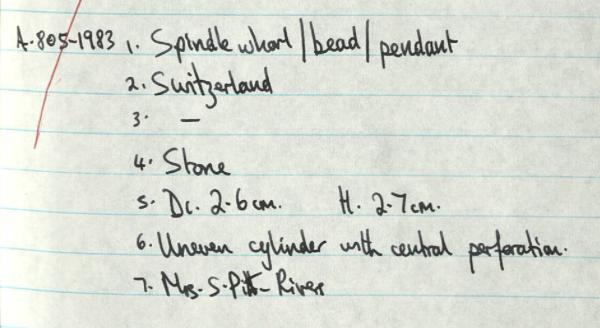 A.805-1983 1. Spindle whorl/bead/pendant
2. Switzerland
3. —
4. Stone
5. Di. 2.6cm. H. 2.7cm.
6. Uneven cylinder with central perforation.
7. Mrs. S. Pitt-Rivers